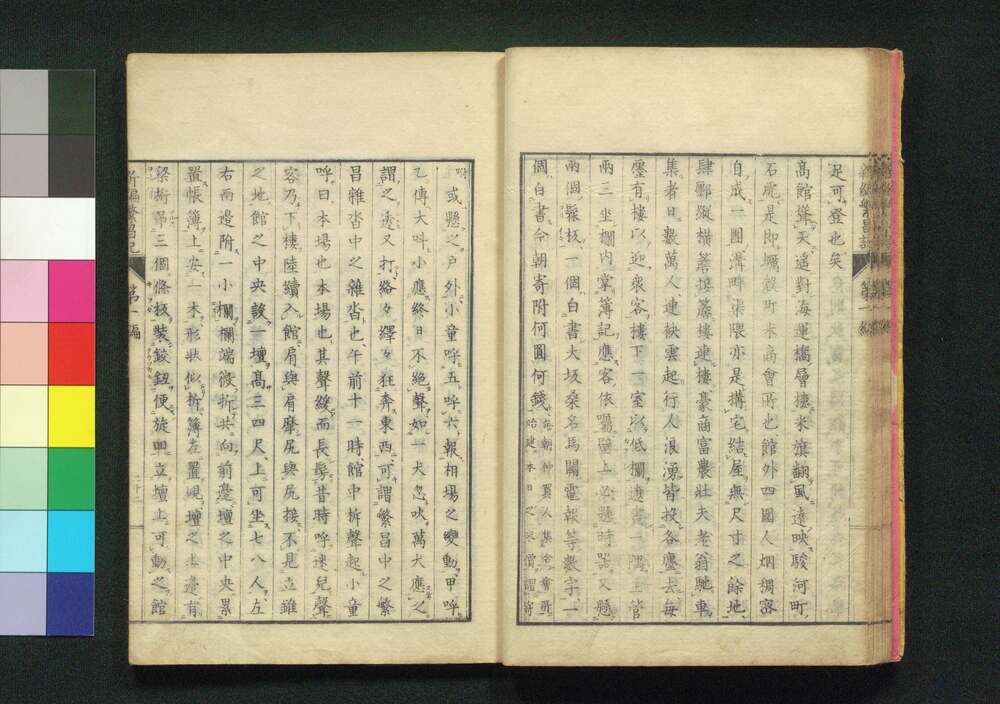 足可登也矣
高館聳天遥對海運橋層樓米旗翻風遠映駿河町
石是即蠣殻町米商會所也館外四圍人烟稠密
自成一團溝畔渠隈亦是構宅結屋無尺寸之餘地
肆鄽縱橫簷接簷樓連樓豪商富農壯夫老翁馳車
集者日數萬人連袂雲起行人浪湧皆投各廛去每
廛有樓以迎衆客樓下一室以低欄
兩三坐欄内掌簿記應客依囑壁上必懸時器又懸
兩個板一個白書大坂桑名馬關電報等數字一
個白書今朝寄附何圓何錢
始建本日之米價謂寄
附或懸之戶外小童呼五呼六報相場之變動甲呼
乙傳大叫小應終日不絶聲如一犬忽吠萬犬應之
謂之又打絡々繹々狂奔東西可謂繁昌中之繁
昌雜沓中之雜沓也午前十一時館中柝聲起小童
呼曰本場也本場也其聲緩而長髣昔時呼迷兒聲
容乃下樓陸續入館肩與肩摩尻與尻接不是立錐
之地館之中央設一壇高三四尺上可坐七八人左
右兩邊附一小欄欄端微折共向前邊壇之中央累
置帳簿上安一木形狀似折簿左置硯壇之上邊有
梁桁第三個條板裝鉸鈕便旋皿立壇上可動之館
新編繁昌記
第一編